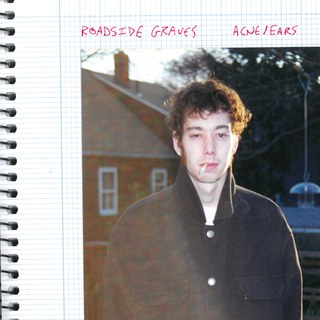 ROADSIDE GRAVES ACNE/EARS